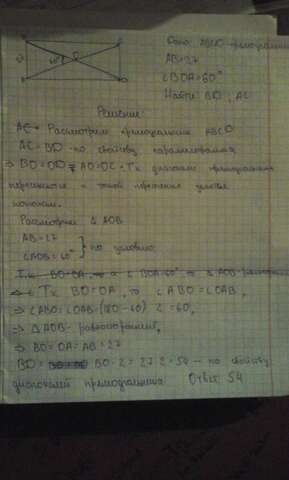 Дано: ABCD-прямоугольник
AB=27
∠BOA=60°
60° O
Найти BD, AC
Решение:
Рассмотрим прямоугольник ABCD
AC = BD - по свойству
⇒ BO=OD=AO=OC. Тк диагонали прямоугольника
пересекаются точкой пересечения
пополам.
Рассмотрим Δ AOB
AB=27
∠AOB=60°
} по условию
Тк BO=OA, то ∠ABO=∠OAB,
⇒ ∠ABO=∠OAB=(180-60):2=60,
⇒ ΔAOB-равносторонний,
⇒ BO=OA=AB=27
BD= BO·2=27·2=54 - по свойству
диагоналей прямоугольника Ответ 54